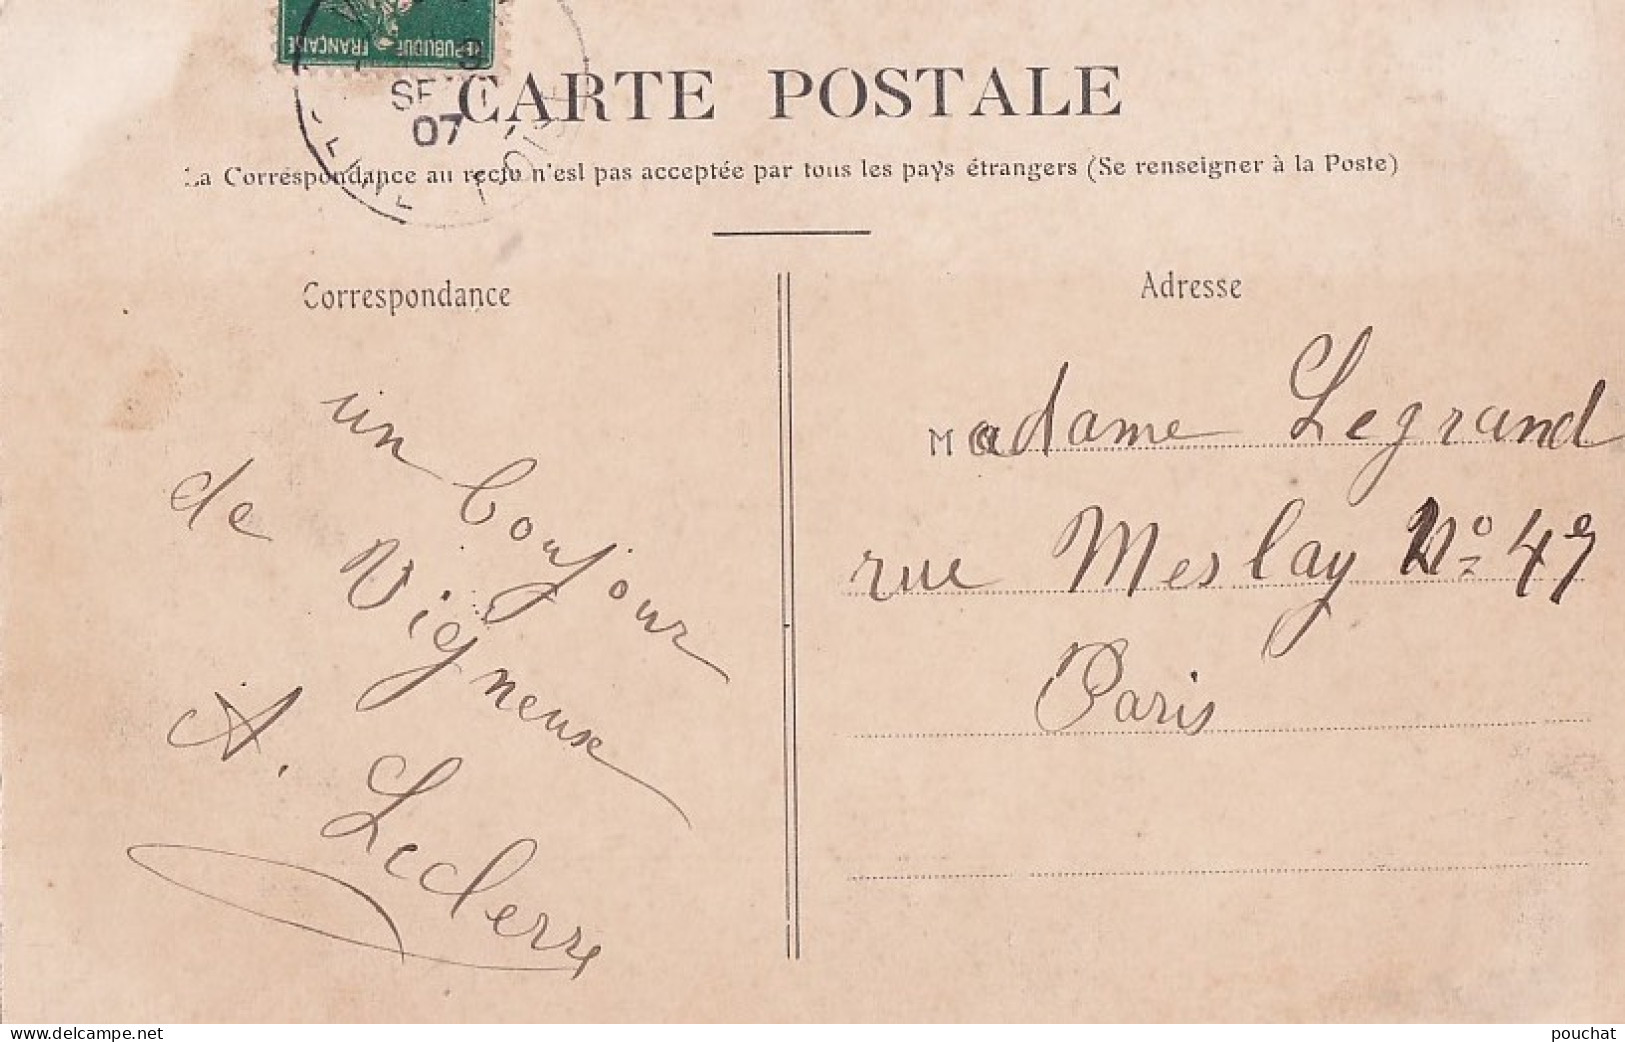 RÉPUBLIQUE FRANÇAISE
SE
07
CARTE POSTALE
La Correspondance au recto n'est pas acceptée par tous les pays étrangers (Se renseigner à la Poste)
Correspondance
un bonjour
de Vigneux
A. Leclerre
Adresse
Madame Legrand
rue Meslay No 49
Paris
www.delcampe.net
pouchat